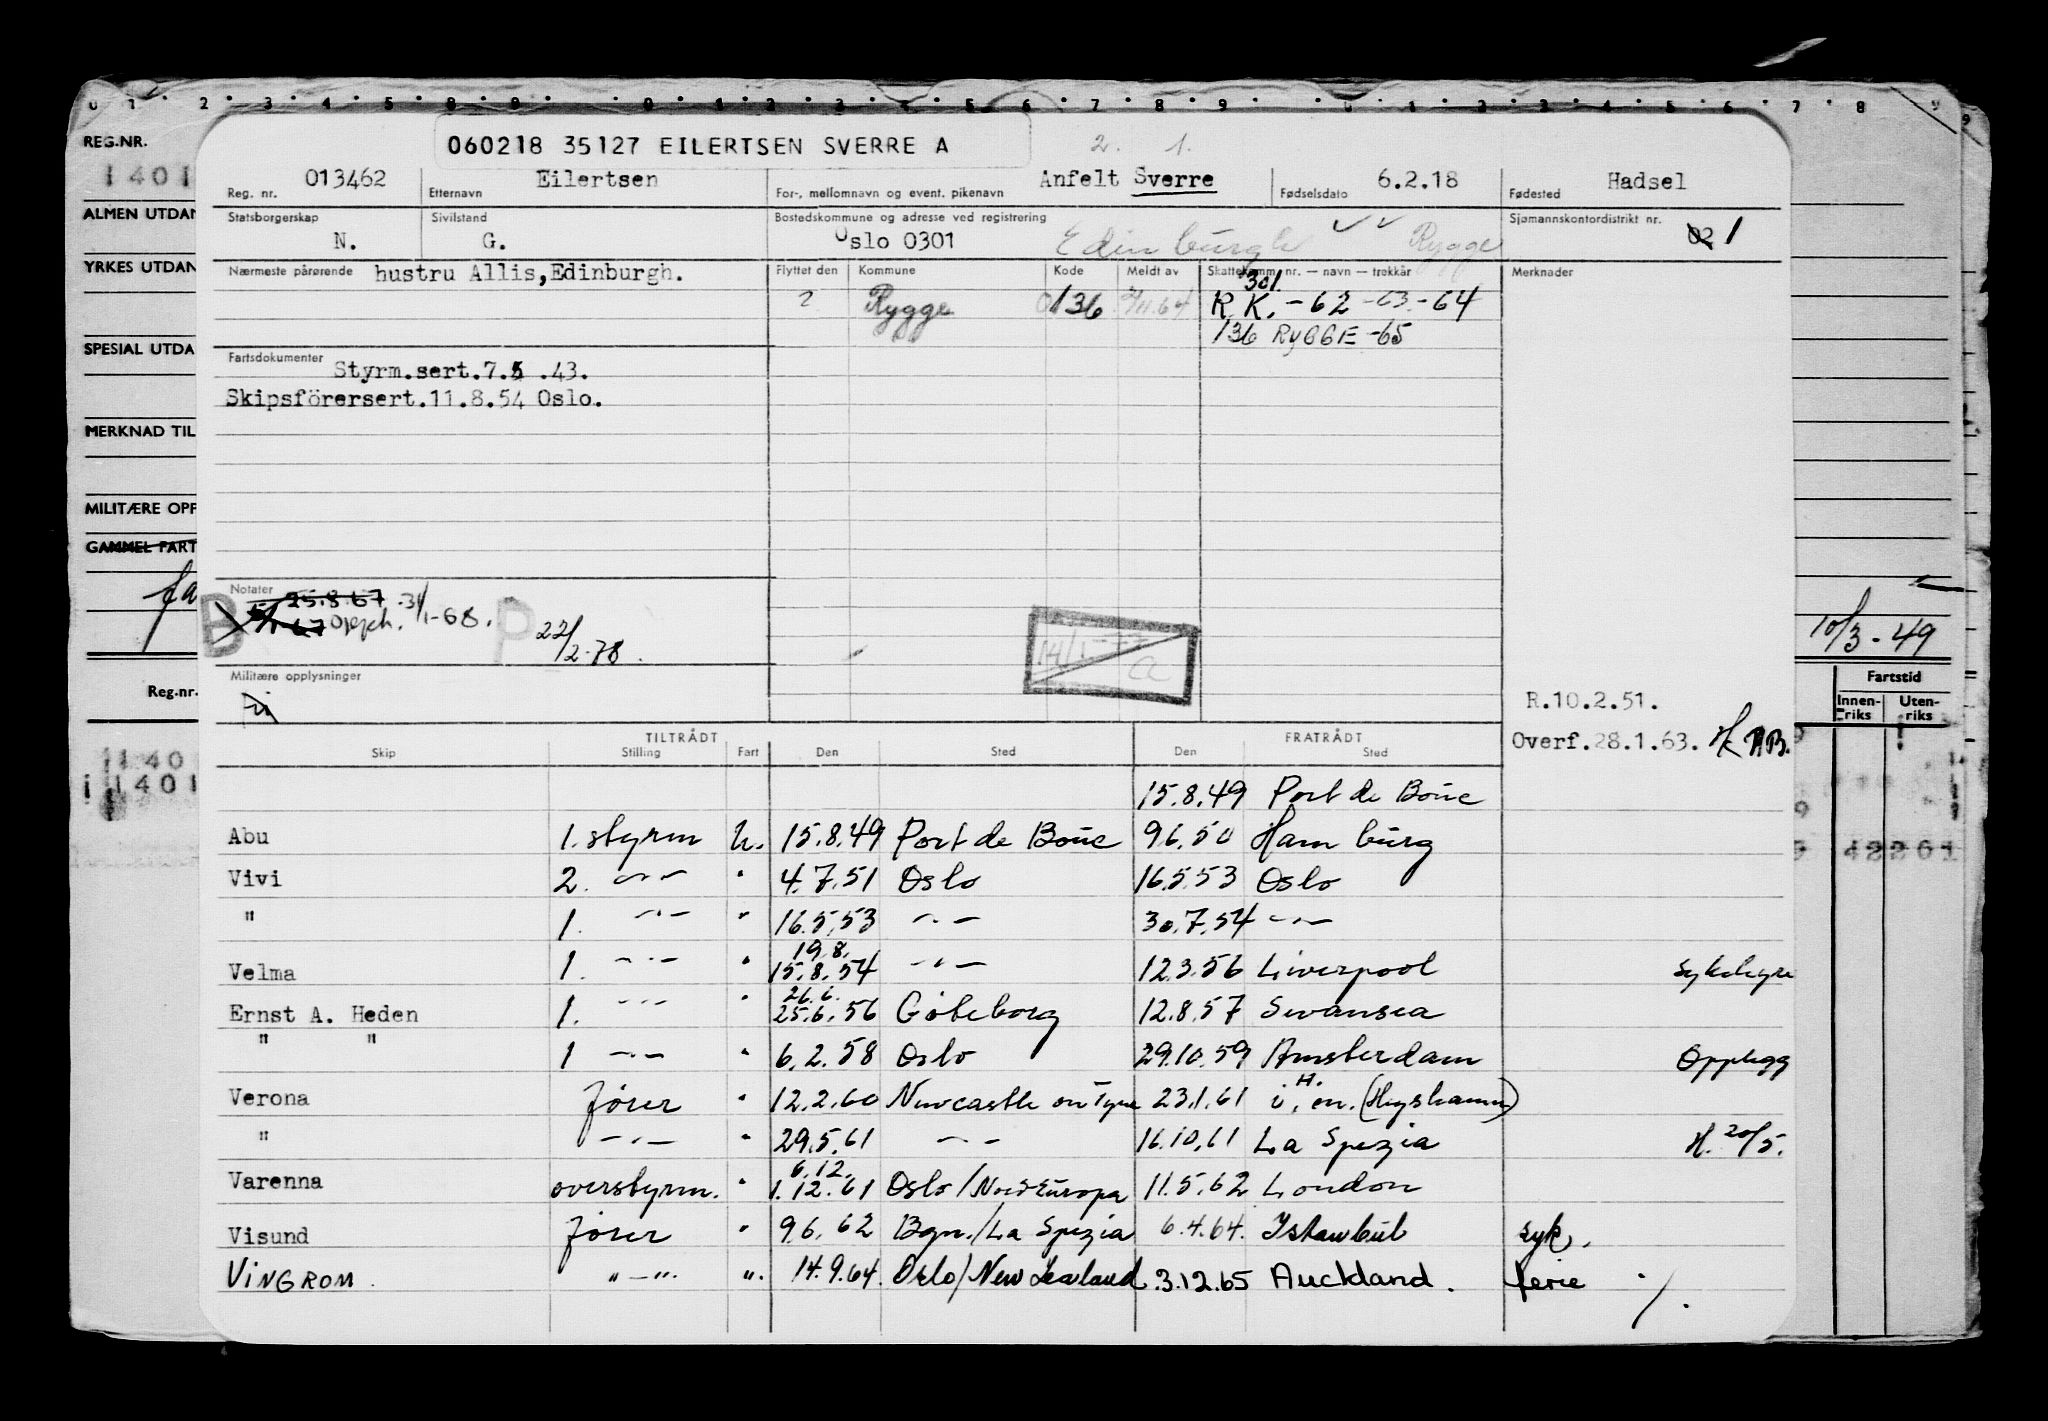 0 1 2 3 4 5 8 9 0 1 2 3 4 5 6 7 8 9 0 1 2 3 4 5 6 7 8 9
REG.NR.
1401
ALMEN UTDAN
YRKES UTDAN
SPESIAL UTDA
MERKNAD TIL
MILITÆRE OPP
GAMMEL FART
fa
10/3-49
Reg.nr.
Fartstid
Innen-riks Uten-riks
11401
42261
060218 35127 EILERTSEN SVERRE A 2. 1.
Reg. nr. 013462 Etternavn Eilertsen For-, mellomnavn og event. pikenavn Anfelt Sverre Fødselsdato 6.2.18 Fødested Hadsel
Statsborgerskap N. Sivilstand G. Bostedskommune og adresse ved registrering Oslo 0301 Edinburgh Rygge Sjømannskontordistrikt nr. 02 1
Nærmeste pårørende hustru Allis,Edinburgh. Flyttet den Kommune Kode Meldt av Skattekomm. nr. — navn — trekkår Merknader
301
? Rygge 0136 2/11.64 R.K. -62 -63 -64
136 RYGGE -65
Fartsdokumenter Styrm.sert.7.5 .43.
Skipsförersert.11.8.54 Oslo.
Notater
25.8.67 31/1-68.
B Oppk. P 22/2-78.
14/1-77 a
Militære opplysninger
R.10.2.51.
Overf.28.1.63.
TILTRÅDT FRATRÅDT
Skip Stilling Fart Den Sted Den Sted
15.8.49 Port de Bouc
Abu 1. styrm u. 15.8.49 Port de Bouc 9.6.50 Hamburg
Vivi 2. -"- " 4.7.51 Oslo 16.5.53 Oslo
" 1. -"- " 16.5.53 -"- 30.7.54 -"-
19.8.
Velma 1. -"- " 15.8.54 -"- 12.3.56 Liverpool Sykehyre
26.6.
Ernst A. Heden 1. -"- " 25.6.56 Göteborg 12.8.57 Swansea
" " 1 -"- " 6.2.58 Oslo 29.10.59 Amsterdam Opplegg
Verona fører " 12.2.60 Newcastle on Tyne 23.1.61 (Heysham)
" -"- " 29.5.61 -"- 16.10.61 La Spezia H. 20/5.
6.12.
Varenna overstyrm. " 1.12.61 Oslo/Nord Europa 11.5.62 London
Visund fører " 9.6.62 Bgn./La Spezia 6.4.64. Istanbul syk.
VINGROM. "-" ". 14.9.64. Oslo/New Zealand 3.12.65 Auckland. ferie ./.